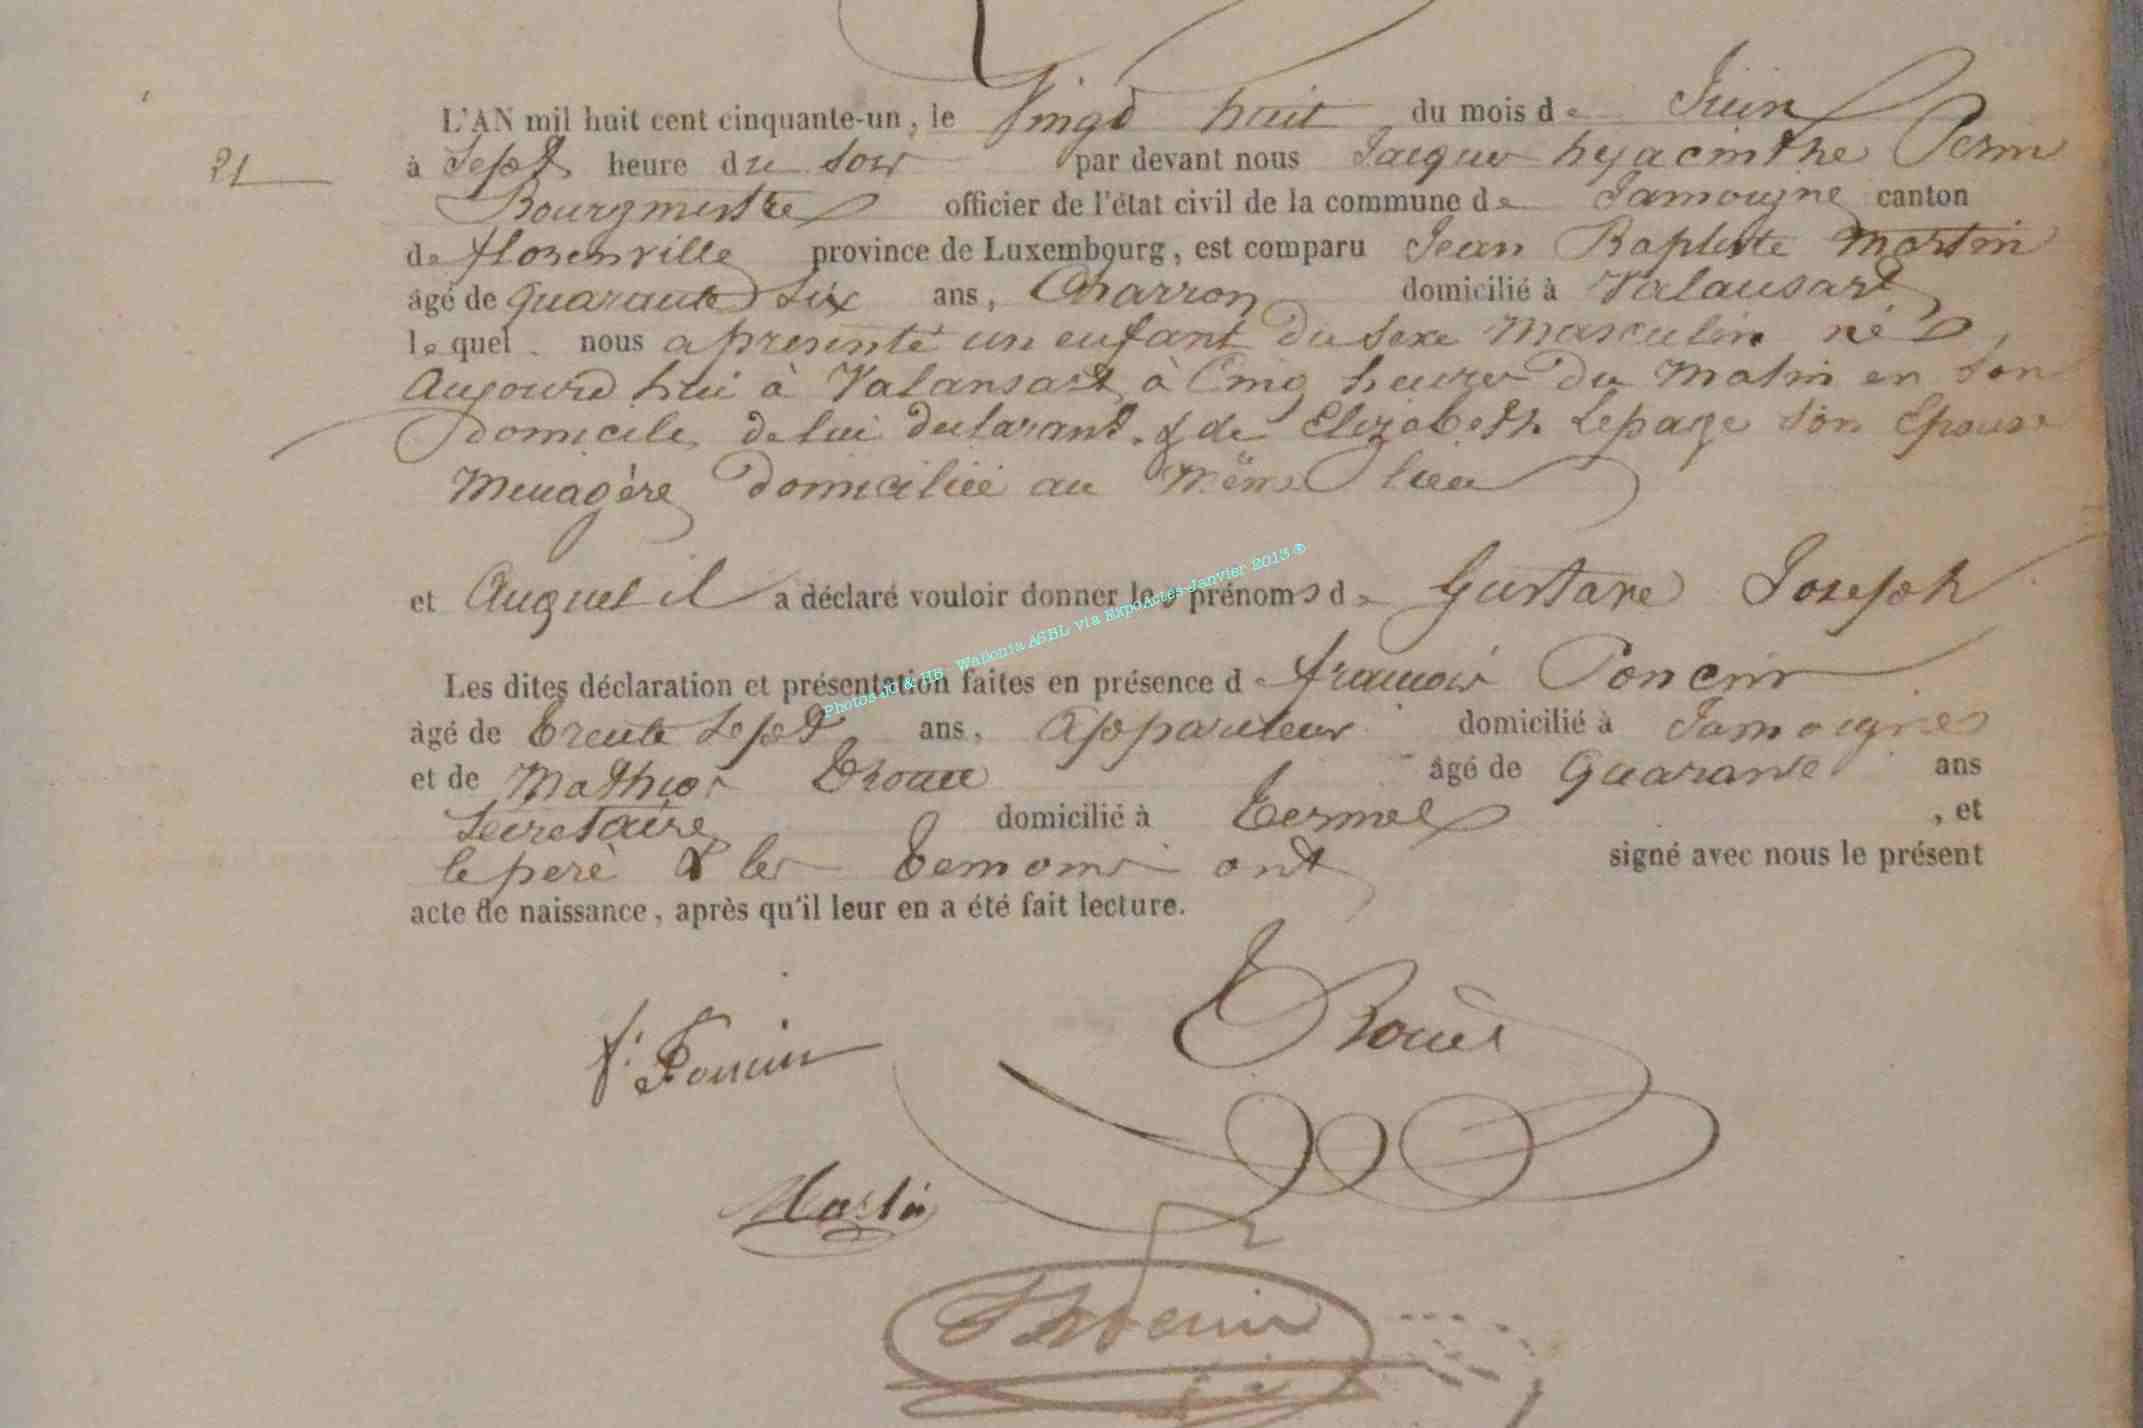 L'AN mil huit cent cinquante-un, le Vingt huit du mois de Juin
21
à Sept heure du soir par devant nous Jacques hyacinthe
Bourgmestre officier de l'état civil de la commune de Jamoigne canton
de florenville province de Luxembourg, est comparu Jean Baptiste Martin
âgé de quarante Six ans, Charron domicilié à Valansart
lequel nous a présenté un enfant du sexe Masculin né
Aujourd'hui à Valansart à Cinq heures du Matin en son
domicile, de lui declarant & de Elizabeth Lepage son Epouse
Menagère domiciliée au même lieu
et Auquel il a déclaré vouloir donner les prénoms de Gustave Joseph
Les dites déclaration et présentation faites en présence de francois Poncin
âgé de trente Sept ans, Appariteur domicilié à Jamoignes
et de Mathieu âgé de Quarante ans
Secretaire domicilié à Termes , et
le pere & les temoins ont signé avec nous le présent
acte de naissance, après qu'il leur en a été fait lecture.
Photos JC & HB - Wallonia ASBL via ExpoActes-Janvier 2013 ®
f. Poncin
Martin